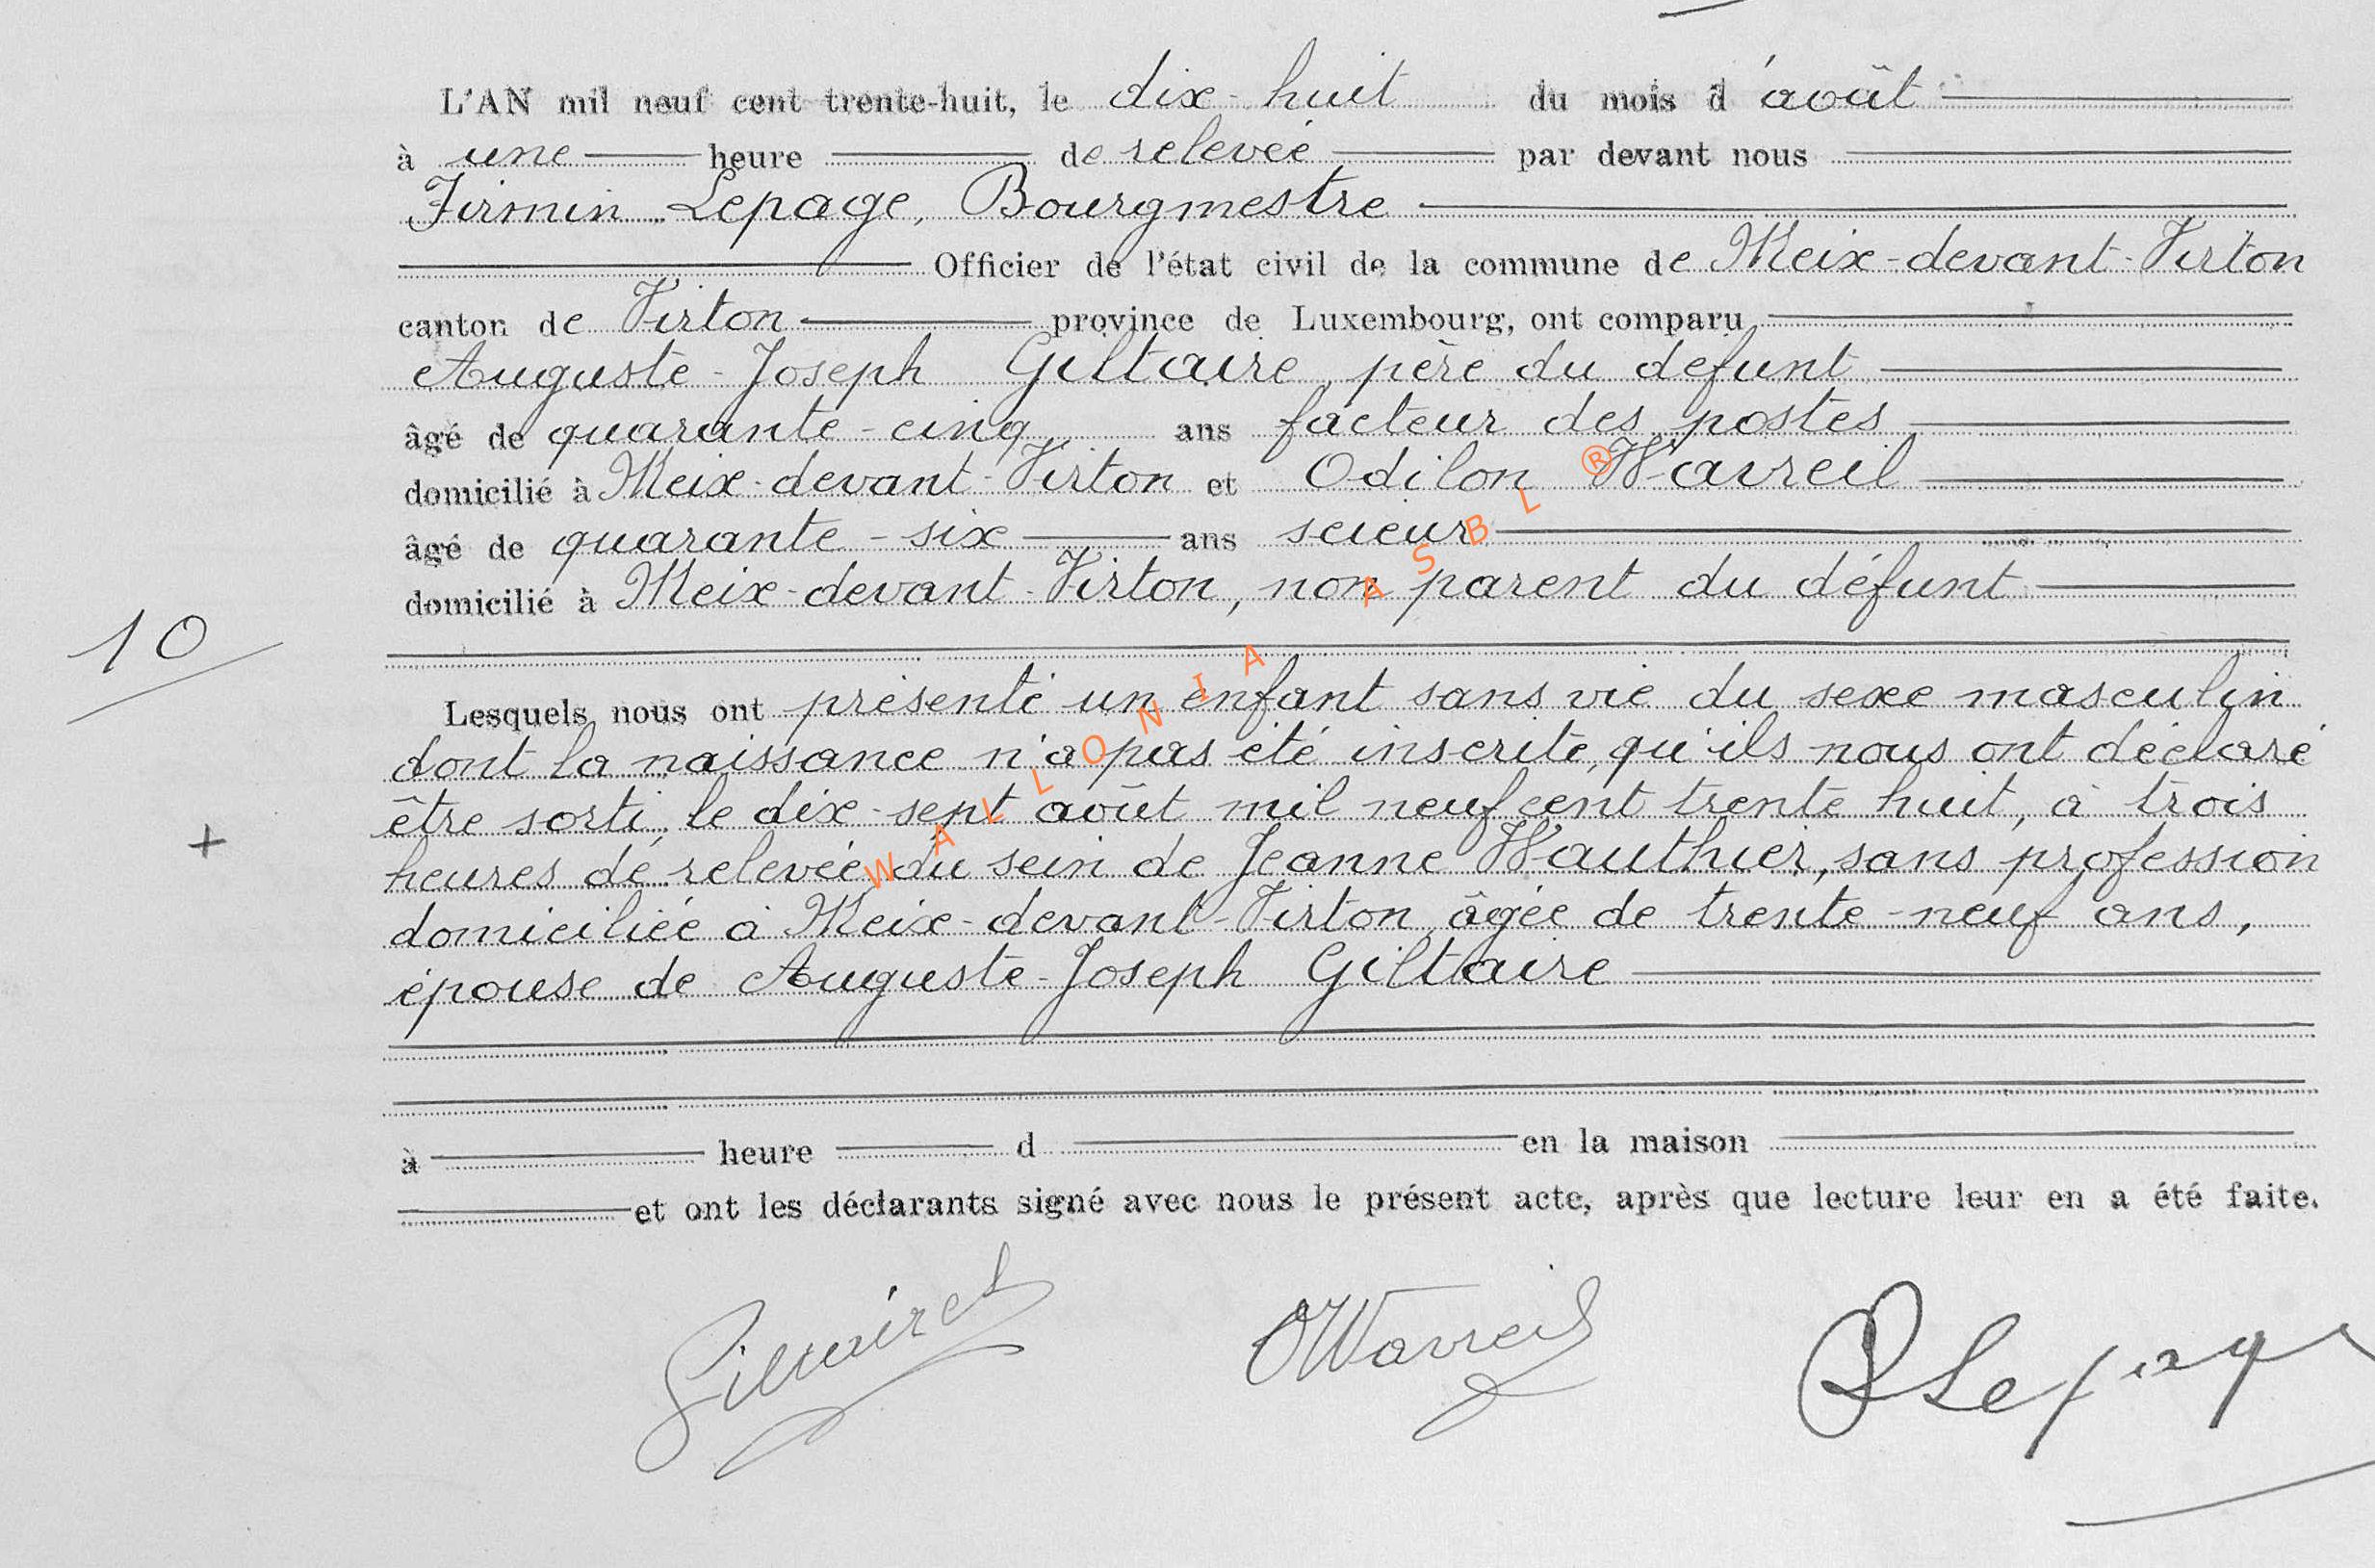 L'AN mil neuf cent trente-huit, le dix-huit du mois d'août
à une heure de relevée par devant nous
Firmin Lepage, Bourgmestre
Officier de l'état civil de la commune de Meix-devant-Virton
canton de Virton province de Luxembourg, ont comparu
Auguste-Joseph Giltaire, père du défunt
âgé de quarante-cinq ans facteur des postes
domicilié à Meix-devant-Virton et Odilon Wavreil
âgé de quarante-six ans scieur
domicilié à Meix-devant-Virton, non parent du défunt
10
Lesquels nous ont présenté un enfant sans vie du sexe masculin
dont la naissance n'a pas été inscrite, qu'ils nous ont déclaré
être sorti, le dix-sept août mil neuf cent trente huit, à trois
+
heures de relevée, du sein de Jeanne Wauthier, sans profession
domiciliée à Meix-devant-Virton, âgée de trente-neuf ans,
épouse de Auguste-Joseph Giltaire
à heure d en la maison
et ont les déclarants signé avec nous le présent acte, après que lecture leur en a été faite.
OWavreil
Lepage
WALLONIA ASBL ®